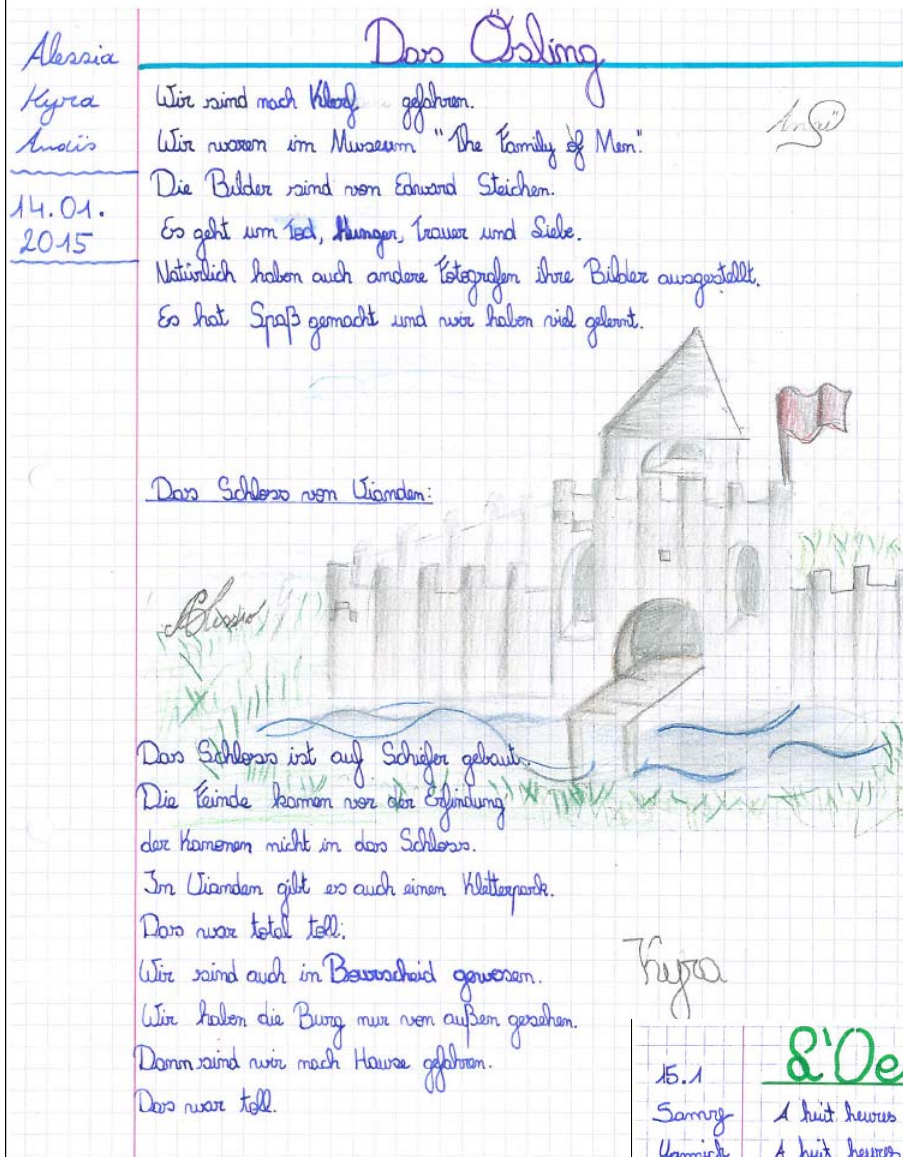 Das Ösling
Alessia
Kyra
Anaïs
14.01.
2015
Wir sind nach Klerf gefahren.
Wir waren im Museum "The Family of Men".
Die Bilder sind von Edward Steichen.
Es geht um Tod, Hunger, Trauer und Liebe.
Natürlich haben auch andere Fotografen ihre Bilder ausgestellt.
Es hat Spaß gemacht und wir haben viel gelernt.
Anaï
Das Schloss von Vianden:
Alessia
Das Schloss ist auf Schiefer gebaut.
Die Feinde kamen vor der Erfindung
der Kanonen nicht in das Schloss.
In Vianden gibt es auch einen Kletterpark.
Das war total toll.
Wir sind auch in Bourscheid gewesen.
Wir haben die Burg nur von außen gesehen.
Dann sind wir nach Hause gefahren.
Das war toll.
Kyra
L'Oe
15.1
Samy
A huit heures
Yannick
A huit heures